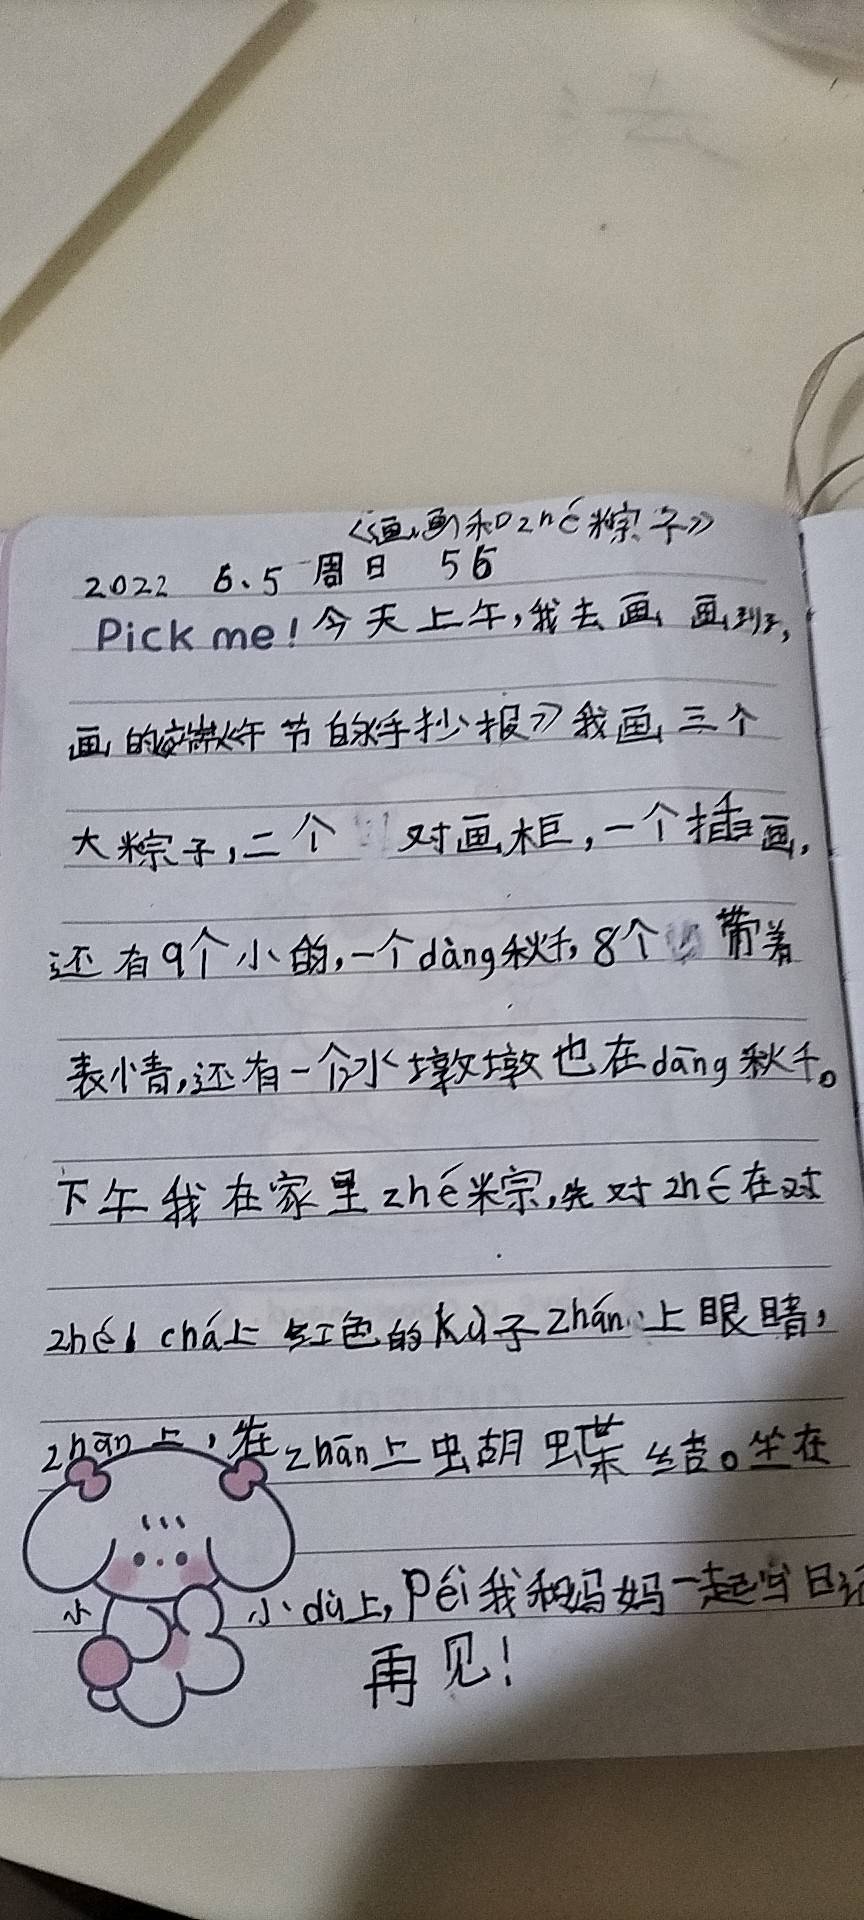 《画画和zhé粽子》
2022 6.5 周日 56
Pick me! 今天上午,我去画画班,
画的端午节的手抄报》我画三个
大粽子,二个对画柜,一个插画,
还有9个小的,一个dàng秋千,8个带着
表情,还有一个冰墩墩也在dāng秋千。
下午我在家里zhé粽,先对zhé在对
zhé, chá上红色的kù子zhán上眼睛,
zhān上,在zhān上蝴蝶结。坐在
小 小dù上,Péi我和妈妈一起写日记
再见!